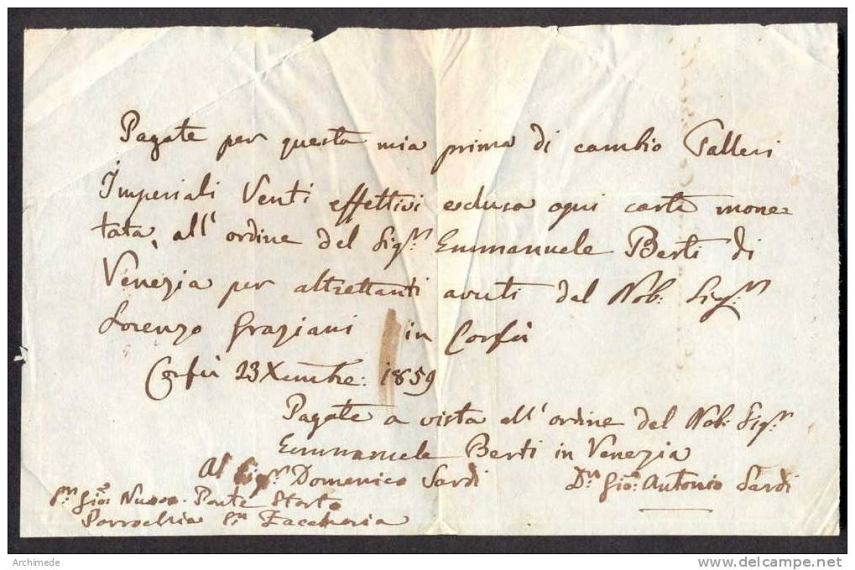 Pagate per questa mia prima di cambio Talleri
Imperiali Venti effettivi esclusa ogni carta mone=
tata, all' ordine del Sigr. Emmanuele Berti di
Venezia per altrettanti avuti dal Nob: Sigr:
Lorenzo Graziani in Corfù
Corfù 23 Xembre: 1859
Pagate a vista all' ordine del Nob: Sigr.
Emmanuele Berti in Venezia
Al Sigr. Domenico Sardi
Dn. Gio: Antonio Sardi
Sn. Gio: Nuovo Ponte Storto
Parrochia Sn. Zaccharia
Archimede
delcampe.net